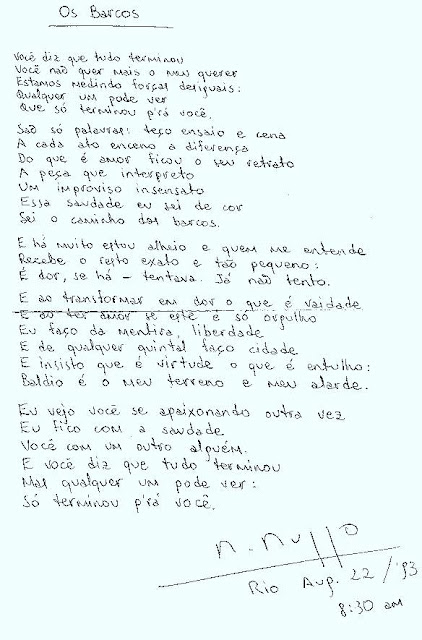 Os Barcos
Você diz que tudo terminou
Você não quer mais o meu querer
Estamos medindo forças desiguais:
Qualquer um pode ver
Que só terminou p'rá você.
São só palavras: teço ensaio e cena
A cada ato enceno a diferença
Do que é amor ficou o seu retrato
A peça que interpreto
Um improviso insensato
Essa saudade eu sei de cor
Sei o caminho dos barcos.
E há muito estou alheio e quem me entende
Recebe o resto exato e tão pequeno:
É dor, se há – tentava. Já não tento.
E ao transformar em dor o que é vaidade
E ao ter amor se este é só orgulho
Eu faço da mentira, liberdade
E de qualquer quintal faço cidade
E insisto que é virtude o que é entulho:
Baldio é o meu terreno e meu alarde.
Eu vejo você se apaixonando outra vez
Eu fico com a saudade
Você com um outro alguém.
E você diz que tudo terminou
Mas qualquer um pode ver:
Só terminou p'rá você.
Rio Aug. 22/'93
8:30 am